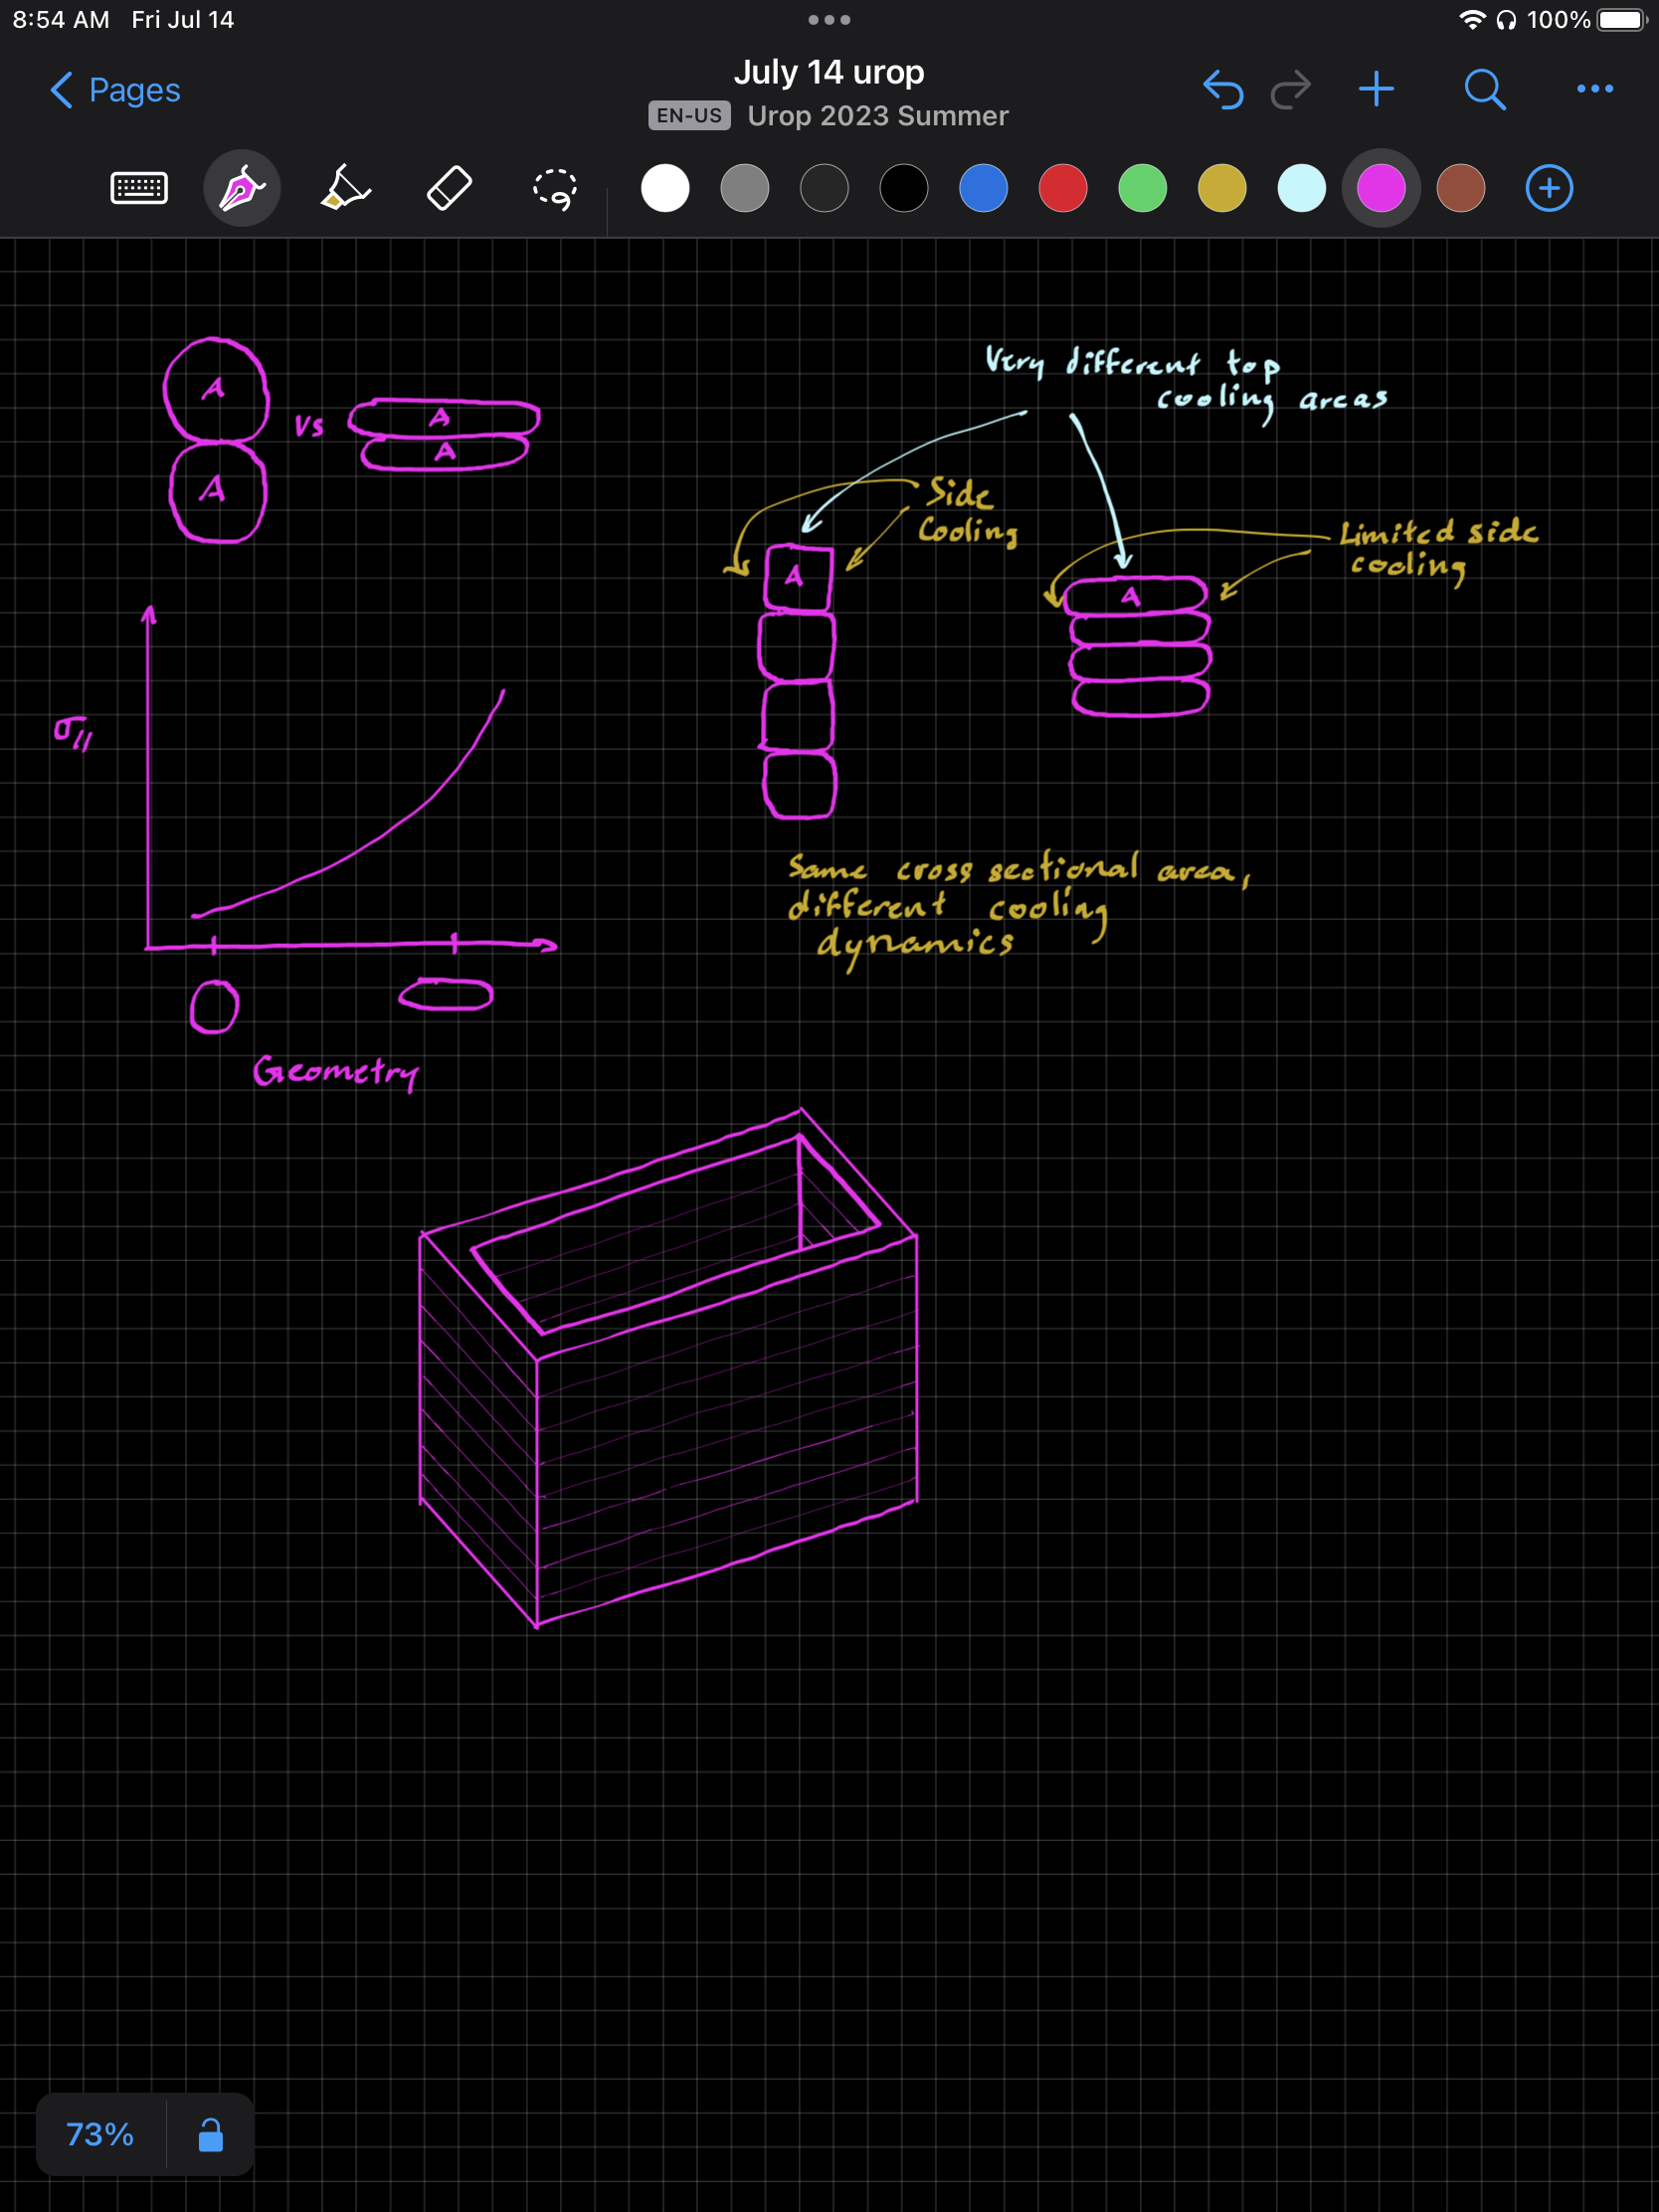 8:54 AM Fri Jul 14
100%
Pages
July 14 urop
EN-US Urop 2023 Summer
A
A
Vs
A
A
Very different top
cooling areas
Side
Cooling
Limited side
cooling
A
A
σ//
Same cross sectional area,
different cooling
dynamics
Geometry
73%